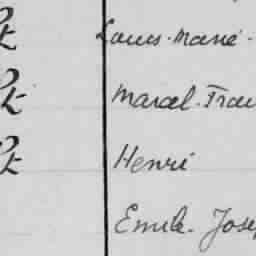 Louis-Marie-
Marcel-Fran
Henri
Emile-Jose